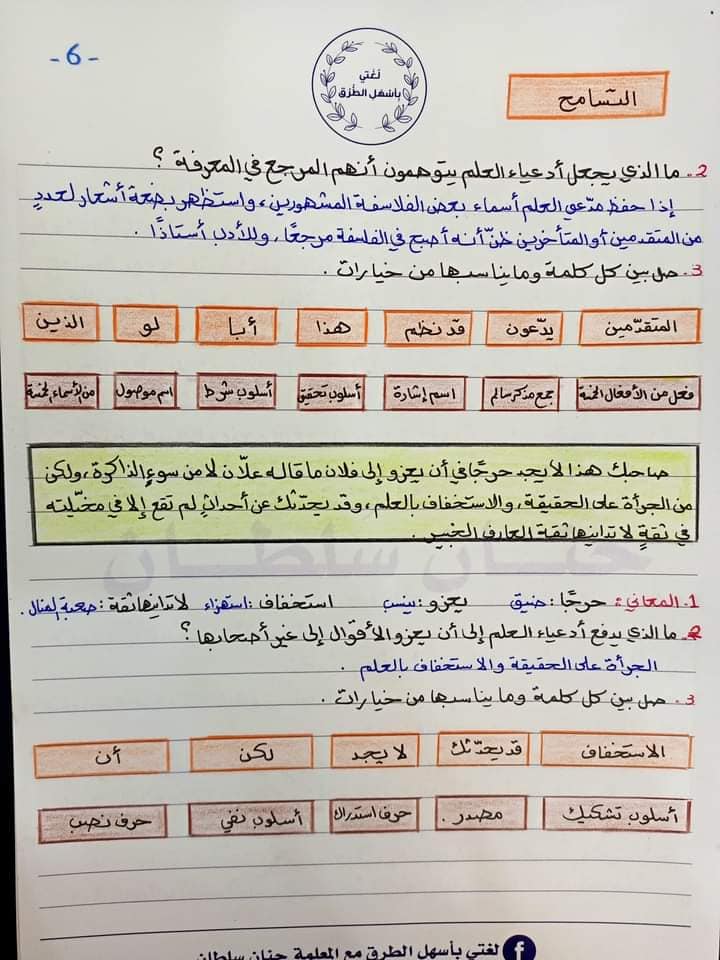 -6-
لغتي
بأسهل الطرق
التسامح
2. ما الذي يجعل أدعياء العلم يتوهمون أنهم المرجع في المعرفة ؟
إذا حفظ مدّعي العلم أسماء بعض الفلاسفة المشهورين، واستظهر بضعة أشعار لعددٍ
من المتقدمين أو المتأخرين ظنّ أنه أصبح في الفلسفة مرجعًا، وللأدب أستاذًا .
3. صل بين كل كلمة وما يناسبها من خيارات .
المتقدّمين يدّعون قد نظم هذا أبا لو الذين
فعل من الأفعال الخمسة جمع مذكر سالم اسم إشارة أسلوب تحقيق أسلوب شرط اسم موصول من الأسماء الخمسة
صاحبك هذا لا يجد حرجًا في أن يعزو إلى فلان ما قاله علّان لا من سوءِ الذاكرة، ولكن
من الجرأة على الحقيقة، والاستخفاف بالعلم، وقد يحدّثك عن أحداثٍ لم تقع إلا في مخيّلته
في ثقةٍ لا تدانيها ثقة العارف الخبير .
حنان سلطان
1. المعاني: حرجًا: ضيق يعزو: ينسب استخفاف: استهزاء لا تدانيها ثقة: صعبة المنال .
2. ما الذي يدفع أدعياء العلم إلى أن يعزو الأقوال إلى غير أصحابها ؟
الجرأة على الحقيقة والاستخفاف بالعلم .
3. صل بين كل كلمة وما يناسبها من خيارات .
الاستخفاف قد يحدّثك لا يجد لكن أن
أسلوب تشكيك مصدر . حرف استدراك أسلوب نفي حرف نصب
لغتي بأسهل الطرق مع المعلمة حنان سلطان